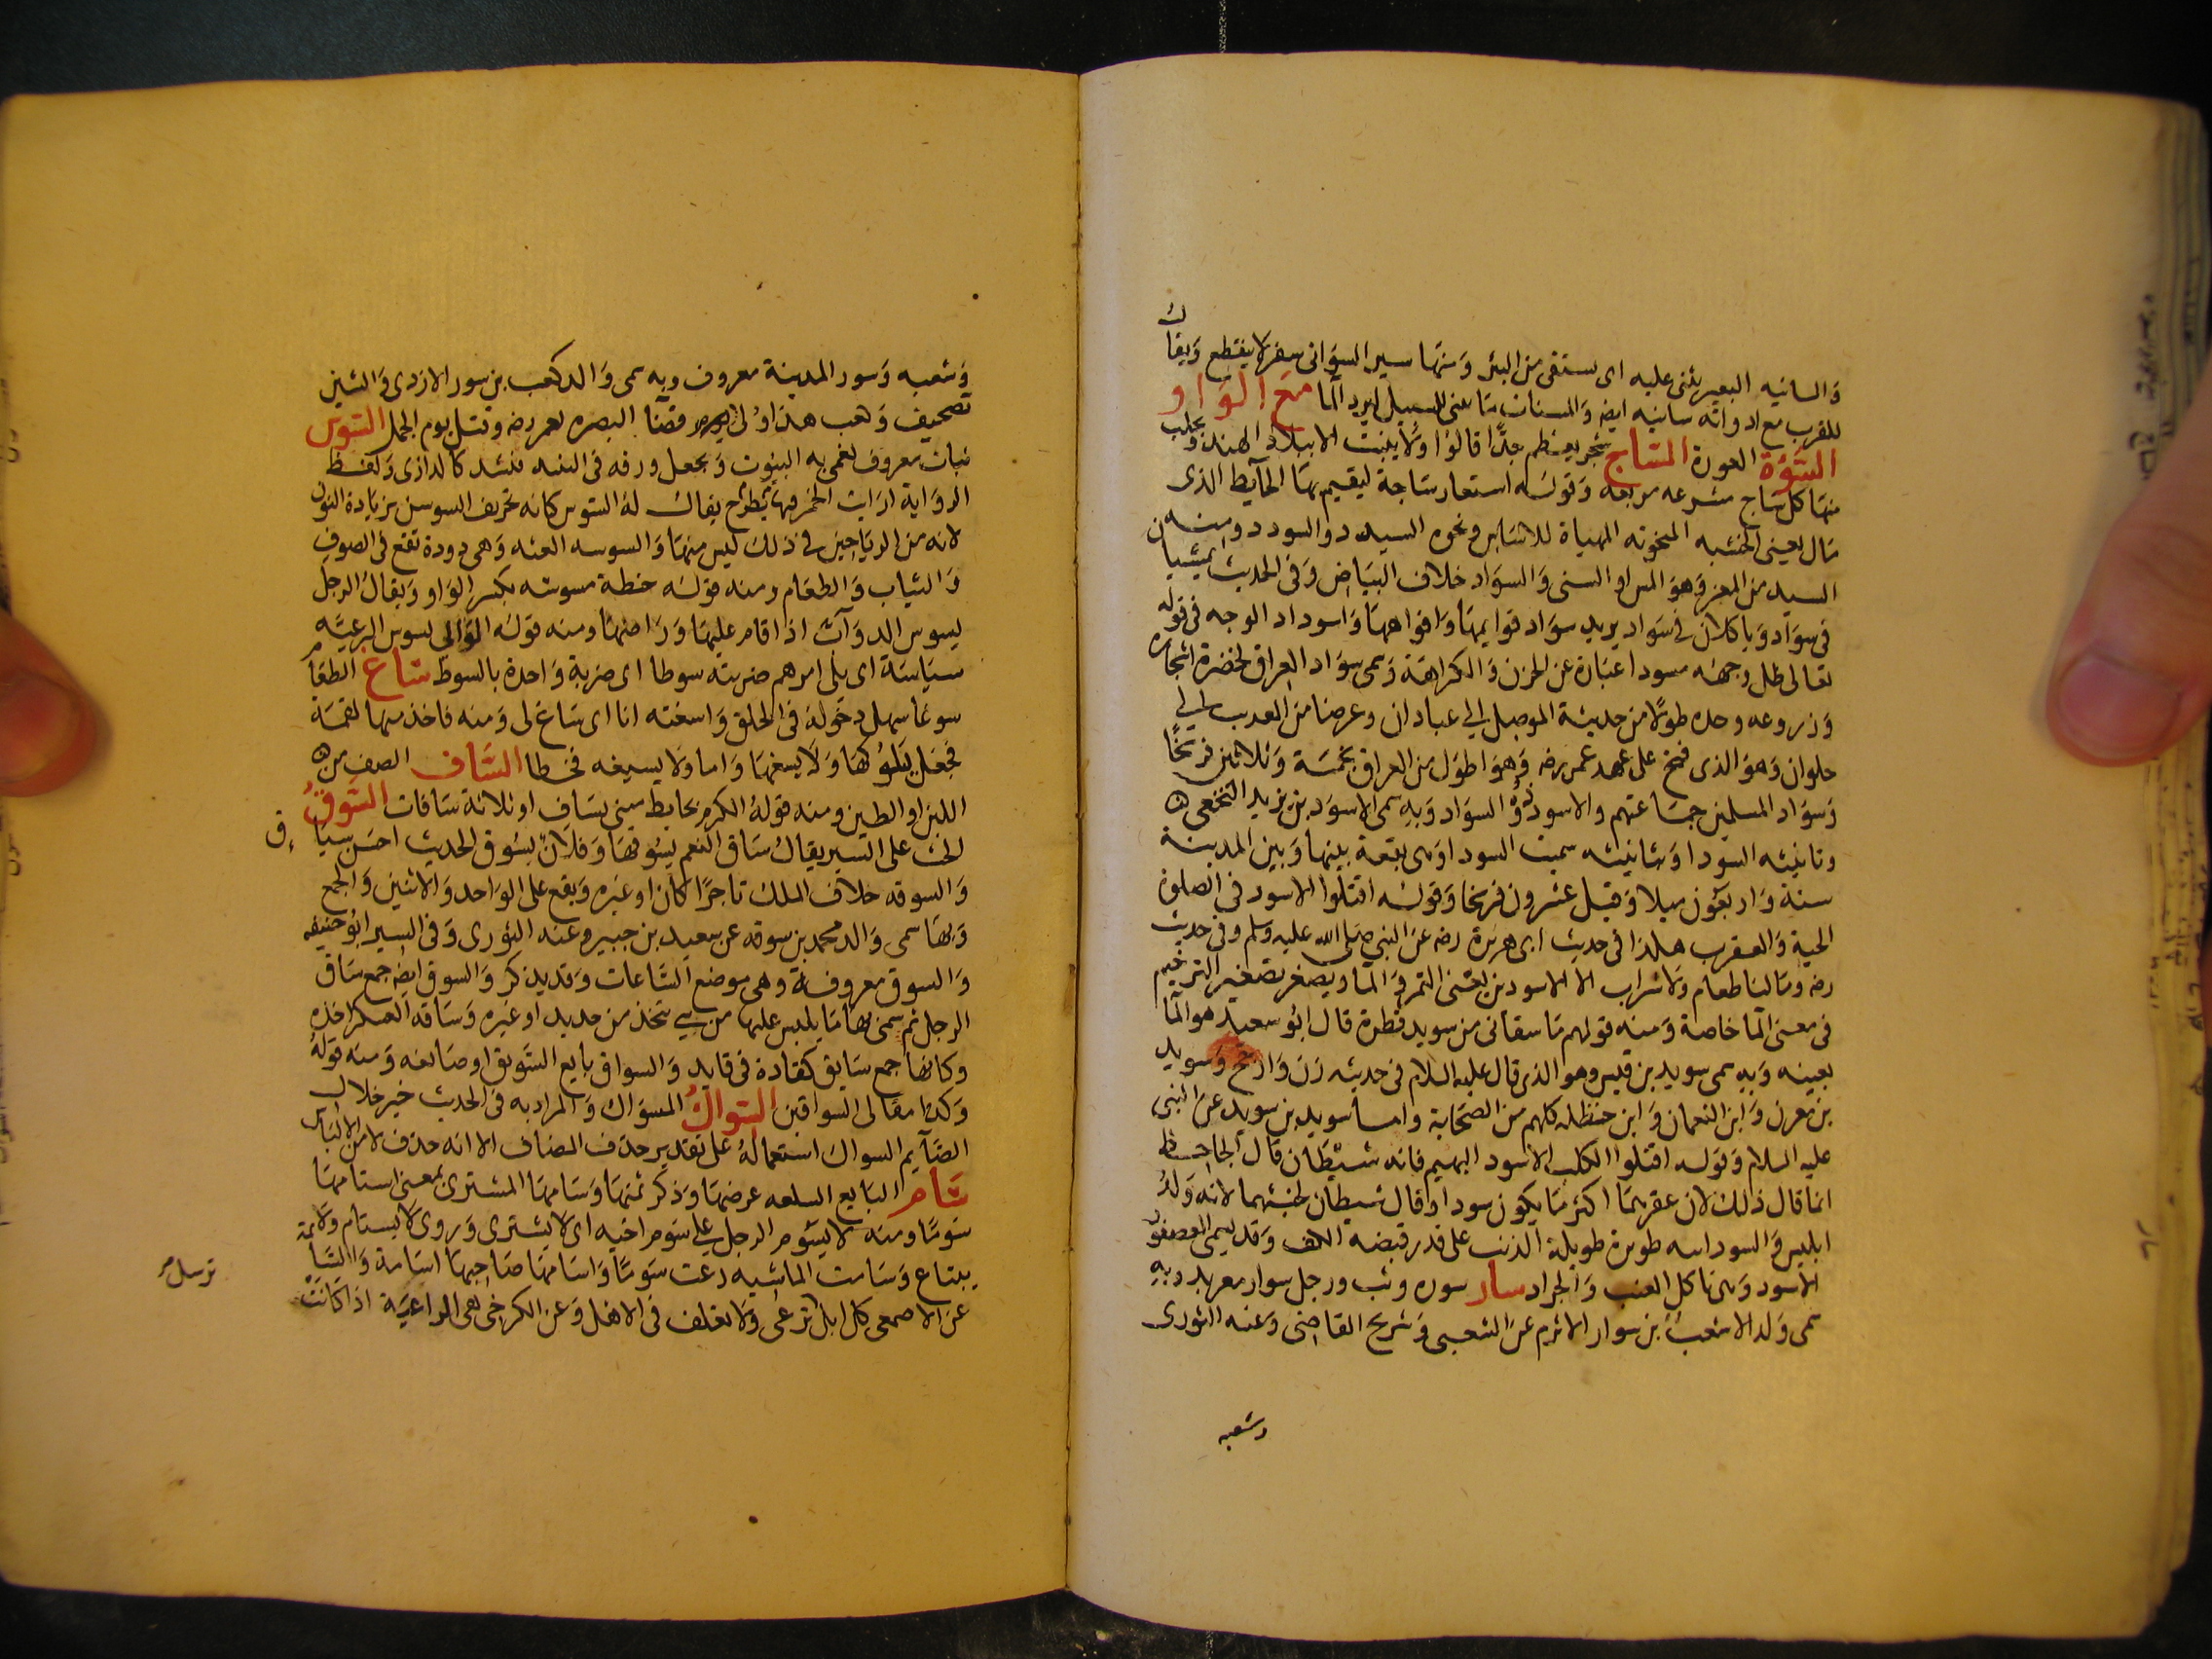 والسانيه البعير يسنى عليه اى يستقى من البئر ومنها سير السوانى سفر لا ينقطع ويقال
للغرب مع ادواته سانيه ايضا والمسناة ما يبنى للسيل ليرد الما مع الواو
السوة العورة الساج شجر يعظم جدا قالوا ولا ينبت الا ببلاد الهند ويجلب
منها كل ساج مشرعه مربعه وقوله استعار ساجة ليقيم بها الحآيط الذى
مال يعنى الخشبه المنحوته المهياة للاساس ونحوه السيد ذو السودد ومنه
السيد من المعز وهو المسن او الثنى والسواد خلاف البياض وفى الحديث يمشيان
فى سواد وياكلان فى سواد يريد سواد قوايمها وافواهها واسوداد الوجه فى قوله
تعالى ظل وجهه مسودا عبارة عن الحزن والكراهة وسمى سواد العراق لخضرة اشجاره
وزروعه وحده طولا من حديثة الموصل الى عبادان وعرضا من العذيب الى
حلوان وهو الذى فتح على عهد عمر رضه وهو اطول من العراق بخمسة وثلاثين فرسخا
وسواد المسلمين جماعتهم والاسود ذو السواد وبه سمى الاسود بن يزيد النخعى
وتانيثه السودا وبتانيثه سميت السودا وهى بقعة بينها وبين المدينة
ستة واربعون ميلا وقيل عشرون فرسخا وقوله اقتلوا الاسودين فى الصلوة
الحية والعقرب هكذا فى حديث ابى هريرة رضه عن النبى صلى الله عليه وسلم وفى حديث
رضه ومالنا طعام ولا شراب الا الاسودين يعنى التمر والما ويصغر تصغير الترخيم
فى معنى الما خاصة ومنه قولهم ما سقانى من سويد قطرة قال ابو سعيد هو الما
بعينه وبه سمى سويد بن قيس وهو الذى قال عليه السلام فى حديثه زن وارجح وسويد
بن مقرن وابن النعمان وابن حنظله كلهم من الصحابة واما سويد بن سويد عن النبى
عليه السلام وقوله اقتلوا الكلب الاسود البهيم فانه شيطان قال الجاحظ
انما قال ذلك لان عقرها اكثر ما يكون سودا وقال شيطان لخبثهما لانه ولد
ابليس والسودانيه طويرة طويلة الذنب على قدر قبضة الكف وقد يسمى العصفور
الاسود وهى تاكل العنب والجراد سار سوره وثب ورجل سوار معربد وبه
سمى والد الاشعث بن سوار الاثرم عن الشعبى وشريح القاضى وعنه الثورى
وشعبه
وشعبه وسور المدينة معروف وبه سمى والد كعب بن سور الازدى والشين
تصحيف وهب هذا ولى قضآ البصره لعمر رضه وقتل يوم الجمل السوس
نبات معروف يغمى به البيوت ويجعل ورقه فى النبيذ فيشتد كالداذى ولفظ
الرواية ارايت الخمر فيها يطرح يقال له السوس كانه تحريف السوسن بزيادة النون
لانه من الرياحين فى ذلك ليس منها والسوسه العثه وهى دودة تقع فى الصوف
والثياب والطعام ومنه قوله حنطة مسوسه بكسر الواو ويقال الرجل
يسوس الدوآب اذا قام عليها وراضها ومنه قوله الوالى يسوس الرعيه
سياسة اى يلى امرهم ضربته سوطا اى ضربة واحدة بالسوط ساغ الطعام
سوغا سهل دخوله فى الحلق واسغته انا اى ساغ لى ومنه فاخذ منها لقمة
فجعل يلوكها ولا يسيغها واما ولا يسيغه فخطا الساف الصف من
اللبن او الطين ومنه قوله الكرم بحايط مبنى بساف او ثلاثة سافات السوق
الحث على السير يقال ساق النعم يسوقها وفلان يسوق الحديث احسن سياق
والسوقه خلاف الملك تاجرا كان او غيره ويقع على الواحد والاثنين والجمع
وبها سمى والد محمد بن سوقه عن سعيد بن جبير وعنه الثورى وفى السير ابو حنيفه
والسوق معروفة وهى موضع البياعات وقد يذكر والسوق ايضا جمع ساق
الرجل ثم سمى بها ما يلبس عليها من شى يتخذ من حديد او غيره وساقه العسكر اخره
وكانها جمع سايق كقادة فى قايد والسواق بايع السويق او صانعه ومنه قوله
وكذا مقالى السواقين السواك المسواك والمراد به فى الحديث خير خلال
الصآيم السواك استعماله على تقدير حذف المضاف الا انه حذف لامن الالباس
سام البايع السلعه عرضها وذكر ثمنها وسامها المشترى بمعنى استامها
سوما ومنه لا يسوم الرجل على سوم اخيه اى لا يشترى وروى لا يستام ولا
يبتاع وسامت الماشيه رعت سوما واسامها صاحبها اسامة والسا
عن الاصمعى كل ابل ترعى ولا تعلف فى الاهل وعن الكرخى هى الراعية اذا كانت
ترسل